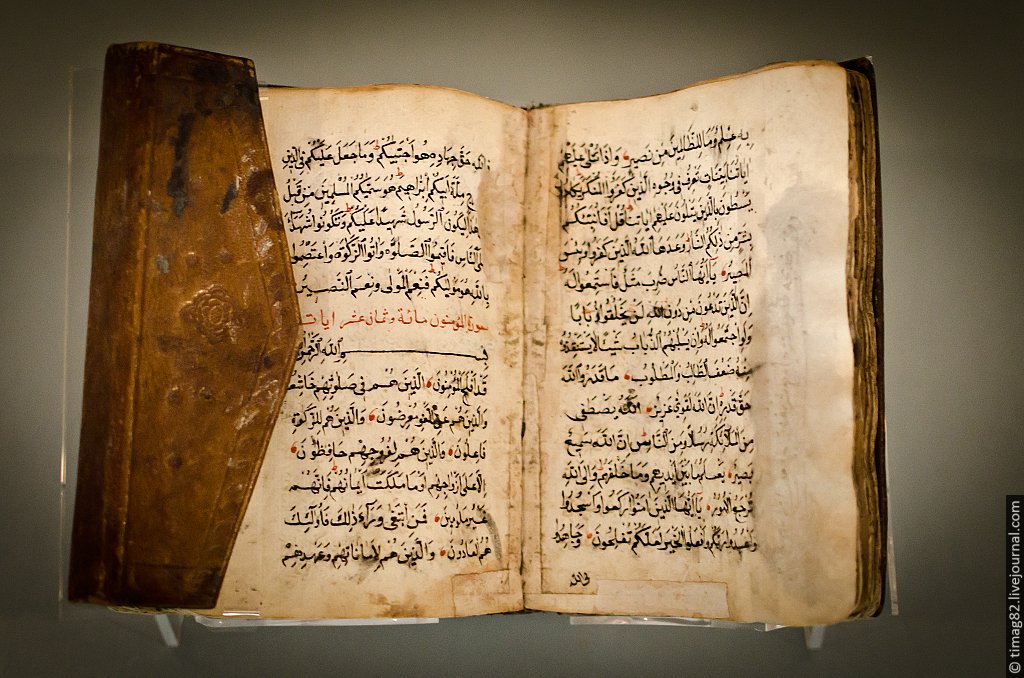 به علم وما للظالمين من نصير واذا تتلى عليهم
اياتنا بينات تعرف في وجوه الذين كفروا المنكر يكادون
يسطون بالذين يتلون عليهم اياتنا قل افانبئكم
بشر من ذلكم النار وعدها الله الذين كفروا وبئس
المصير يا ايها الناس ضرب مثل فاستمعوا له
ان الذين تدعون من دون الله لن يخلقوا ذبابا
ولو اجتمعوا له وان يسلبهم الذباب شيئا لا يستنقذوه
منه ضعف الطالب والمطلوب ما قدروا الله
حق قدره ان الله لقوي عزيز الله يصطفي
من الملائكة رسلا ومن الناس ان الله سميع
بصير يعلم ما بين ايديهم وما خلفهم والى الله
ترجع الامور يا ايها الذين امنوا اركعوا واسجدوا
واعبدوا ربكم وافعلوا الخير لعلكم تفلحون وجاهدوا
في الله
في الله حق جهاده هو اجتبيكم وما جعل عليكم في الدين
حرج ملة ابيكم ابراهيم هو سميكم المسلمين من قبل
هذا ليكون الرسول شهيدا عليكم وتكونوا شهداء
على الناس فاقيموا الصلوة واتوا الزكوة واعتصموا
بالله هو موليكم فنعم المولى ونعم النصير
سورة المؤمنون مائة وثمان عشر ايات
بسم الله الرحمن
قد افلح المؤمنون الذين هم في صلوتهم خاشعون
والذين هم عن اللغو معرضون والذين هم للزكوة
فاعلون والذين هم لفروجهم حافظون
الا على ازواجهم او ما ملكت ايمانهم فانهم
غير ملومين فمن ابتغى وراء ذلك فاولئك
هم العادون والذين هم لاماناتهم وعهدهم
© timag82.livejournal.com